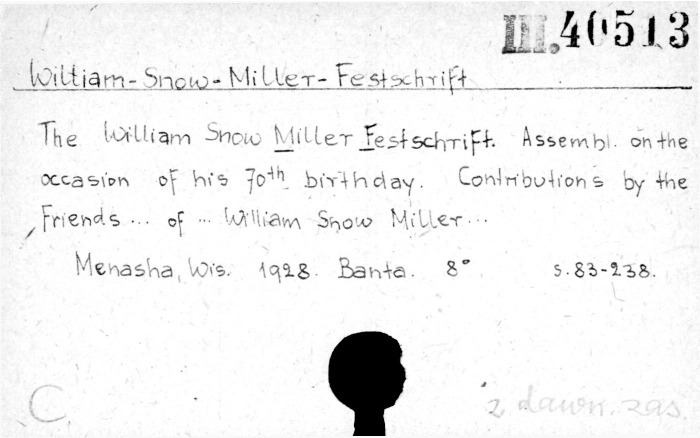 III. 40513
William-Snow-Miller-Festschrift
The William Snow Miller Festschrift. Assembl. on the
occasion of his 70th birthday. Contributions by the
Friends... of ... William Snow Miller...
Menasha, Wis. 1928. Banta. 8° s. 83-238.
C z dawn. zas.